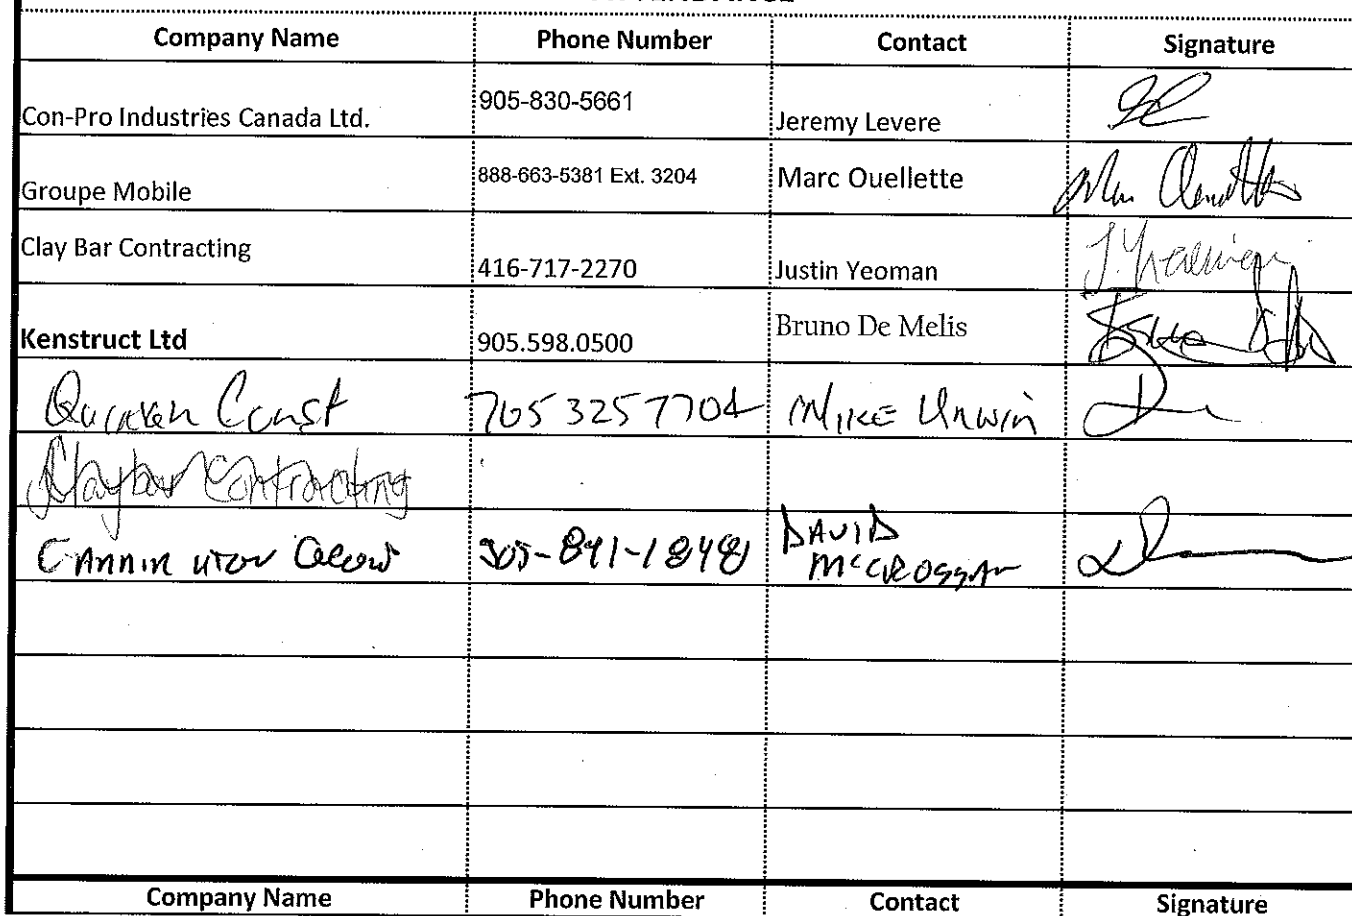 Company Name Phone Number Contact Signature
Con-Pro Industries Canada Ltd. 905-830-5661 Jeremy Levere
Groupe Mobile 888-663-5381 Ext. 3204 Marc Ouellette
Clay Bar Contracting 416-717-2270 Justin Yeoman
Kenstruct Ltd 905.598.0500 Bruno De Melis
Const 7053257704 MIKE Unwin
Claybar Contracting
905-841-1848 DAVID
McCROSSAN
Company Name Phone Number Contact Signature